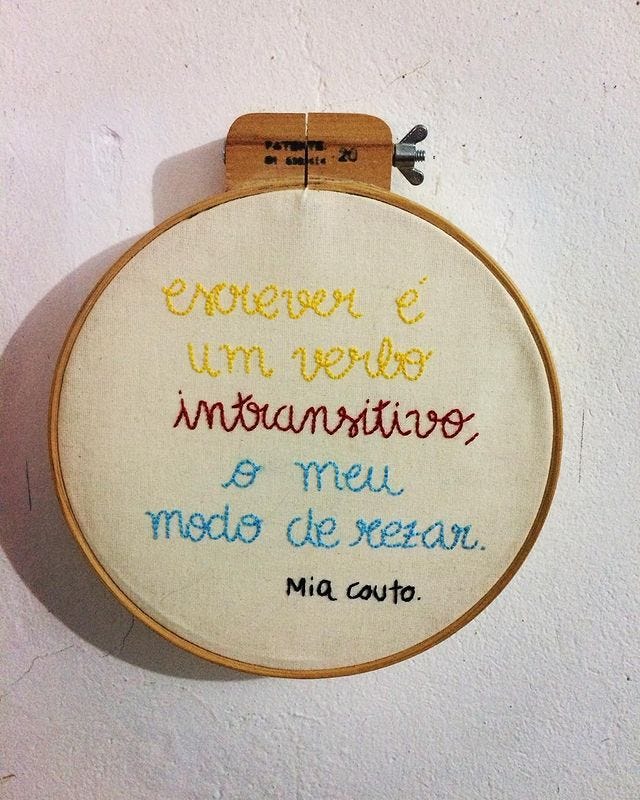 PATENTE
20
escrever é
um verbo
intransitivo,
o meu
modo de rezar.
Mia couto.